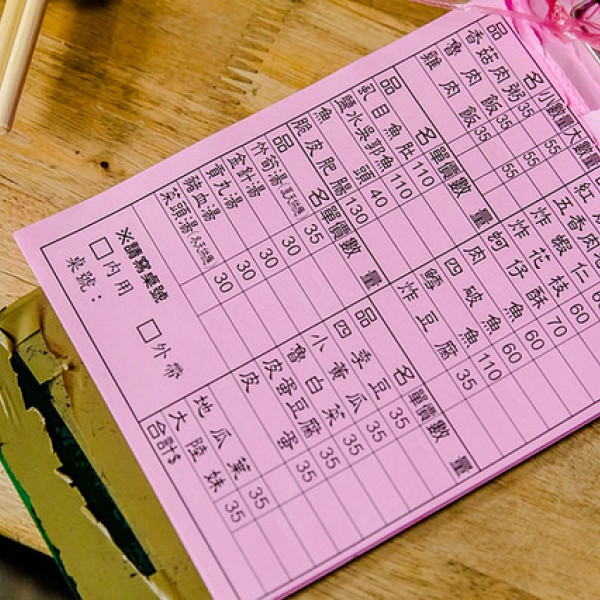 品名 小 數量 大 數量
香菇肉粥 35 55
魯肉飯 35 55
雞肉飯 35 55
品名 單價 數量
虱目魚肚 110
鹽水吳郭魚 110
魚頭 40
脆皮肥腸 130
品名 單價 數量
竹筍湯 35
金針湯 30
膏丸湯 30
豬血湯 30
菜頭湯 30
※請寫桌號
□內用 □外帶
桌號：
五香肉
炸蝦仁 60
炸花枝 70
蚵仔酥 60
肉魚 60
四破魚 110
鱈炸豆腐 35
品名 單價 數量
季豆 35
小黃瓜 35
白菜 35
皮蛋豆腐 35
皮蛋 35
地瓜葉 35
大陸妹 35
合計$